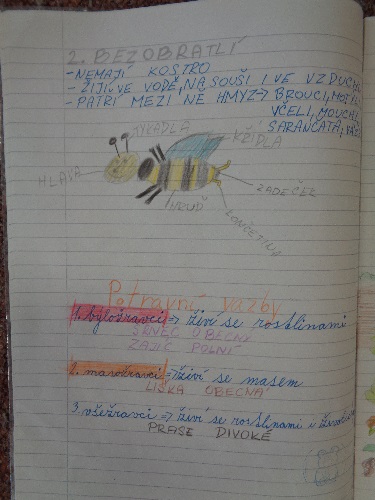 2. BEZOBRATLÍ
- NEMAJÍ KOSTRO
- ŽIJÍ VE VODĚ, NA SOUŠI I VE VZDUCHU
- PATŘÍ MEZI NĚ HMYZ → BROUCI, MOTÝLI
VČELI, MOUCHI
SARANČATA,
TYKADLA
KŘÍDLA
HLAVA
ZADEČEK
HRUĎ
KONČETINA
Potravní vazby
1. býložravci → živí se rostlinami
SRNEC OBECNÝ
ZAJÍC POLNÍ
2. masožravci → živí se masem
LIŠKA OBECNÁ
3. všežravci → živí se rostlinami i
PRASE DIVOKÉ